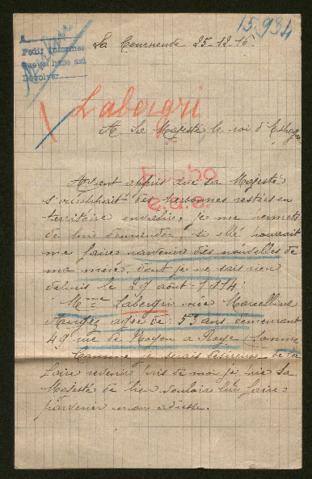 15.984
A
Pedir informes
Devolver
La Courneuve 25-12-16.
Labergri
A Sa Majesté le roi d'Espagne
Ayant appris que Sa Majesté
s'occupait des personnes restées en
territoire envahie, je me permets
de lui demander, si elle pourrait
me faire parvenir des nouvelles de
ma mère, dont je ne sais rien
depuis le 29 août 1914.
Mme Labergri née Marcelline
agée de 53 ans demeurant
49 rue de Noyon a Roye Somme
Comme je serais
faire revenir près de moi je prie Sa
Majesté de bien vouloir lui faire
parvenir mon adresse.